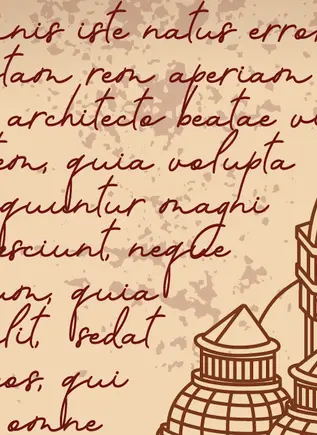 nis iste natus error
tam rem aperiam
architecto beatae vi
em, quia volupta
quuntur magni
esciunt, neque
um, quia
lit, sedat
os, qui
omne